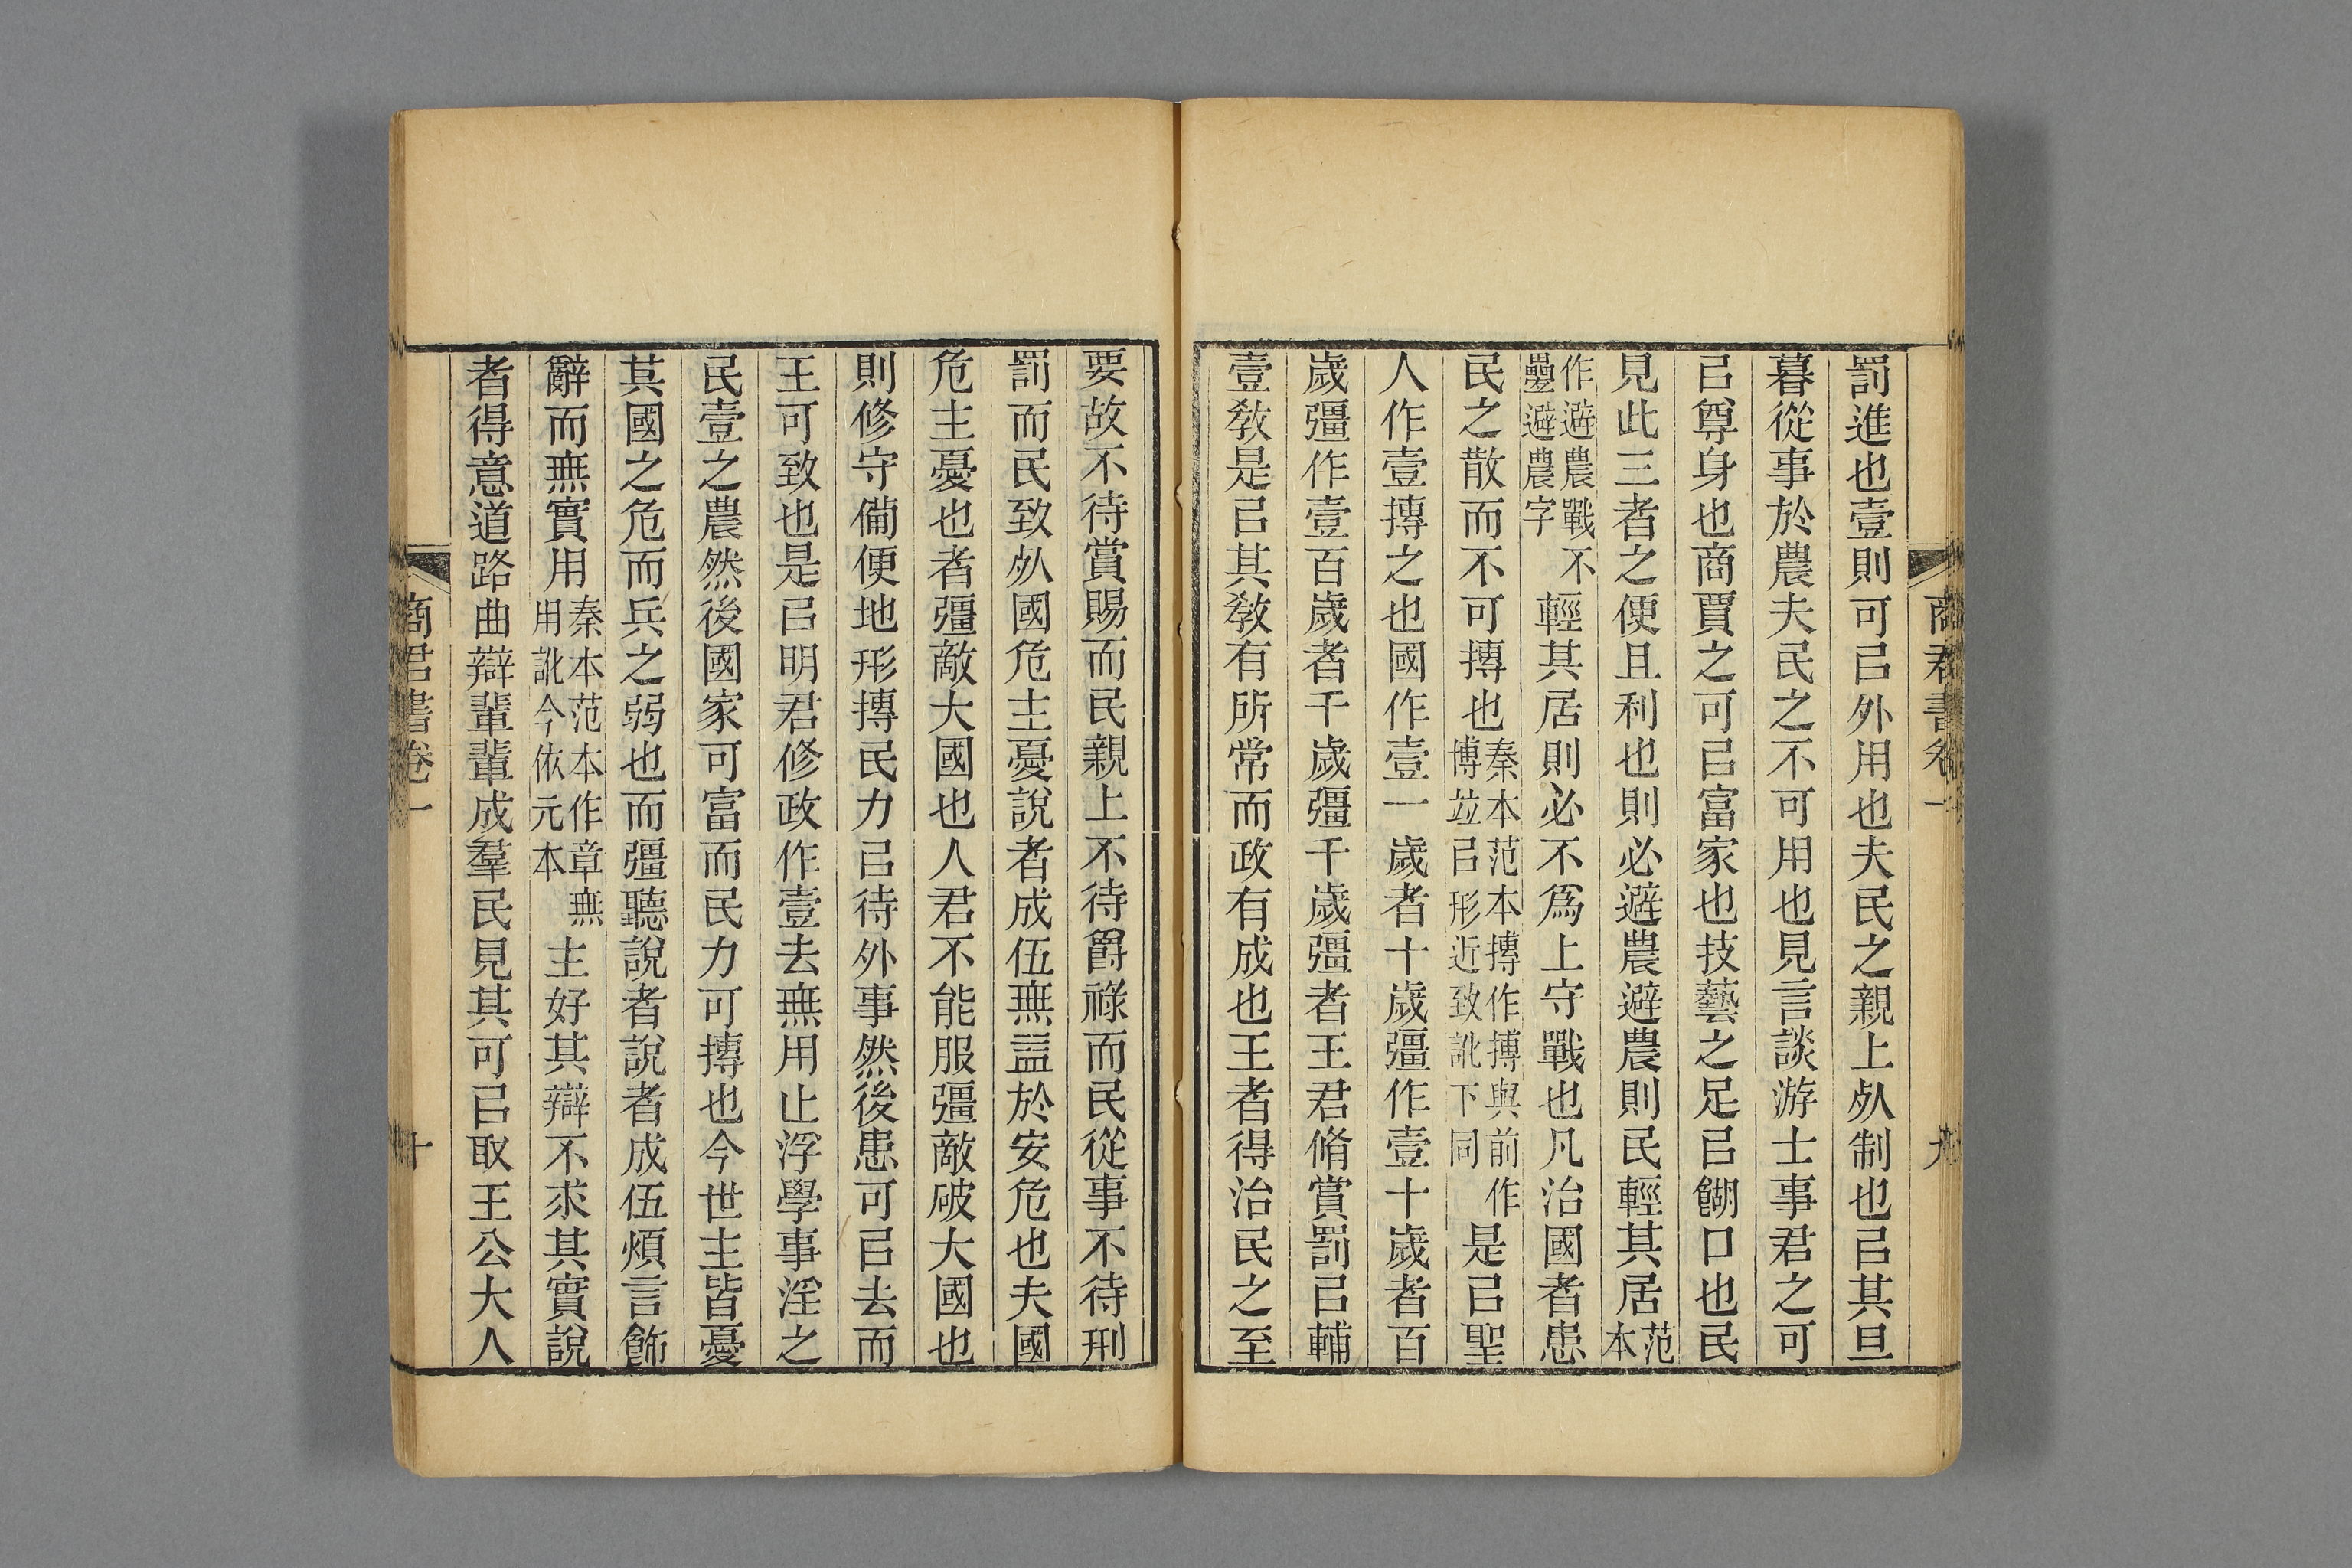 罰進也壹則可㠯外用也夫民之親上𣦸制也㠯其旦
暮從事於農夫民之不可用也見言談游士事君之可
㠯尊身也商賈之可㠯富家也技藝之足㠯餬口也民
見此三者之便且利也則必避農避農則民輕其居范本
作避農戰不疊避農字輕其居則必不爲上守戰也凡治國者患
民之散而不可摶也秦本范本摶作搏與前作博竝㠯形近致訛下同是㠯聖
人作壹摶之也國作壹一歲者十歲彊作壹十歲者百
歲彊作壹百歲者千歲彊千歲彊者王君脩賞罰㠯輔
壹敎是㠯其敎有所常而政有成也王者得治民之至
商君書卷一
九
要故不待賞賜而民親上不待爵祿而民從事不待刑
罰而民致𣦸國危主憂說者成伍無益於安危也夫國
危主憂也者彊敵大國也人君不能服彊敵破大國也
則修守備便地形摶民力㠯待外事然後患可㠯去而
王可致也是㠯明君修政作壹去無用止浮學事淫之
民壹之農然後國家可富而民力可摶也今世主皆憂
其國之危而兵之弱也而彊聽說者說者成伍煩言飾
辭而無實用秦本范本作章無用訛今依元本主好其辯不求其實說
者得意道路曲辯輩輩成羣民見其可㠯取王公大人
商君書卷一
十